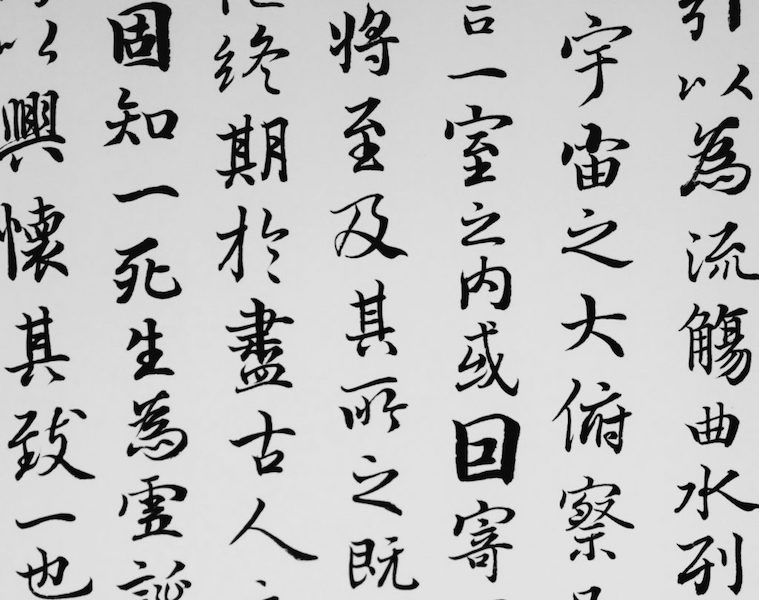 引以為流觴曲水列
宇宙之大俯察
言一室之內或因寄
將至及其所之既
終期於盡古人
固知一死生為虛誕
以興懷其致一也